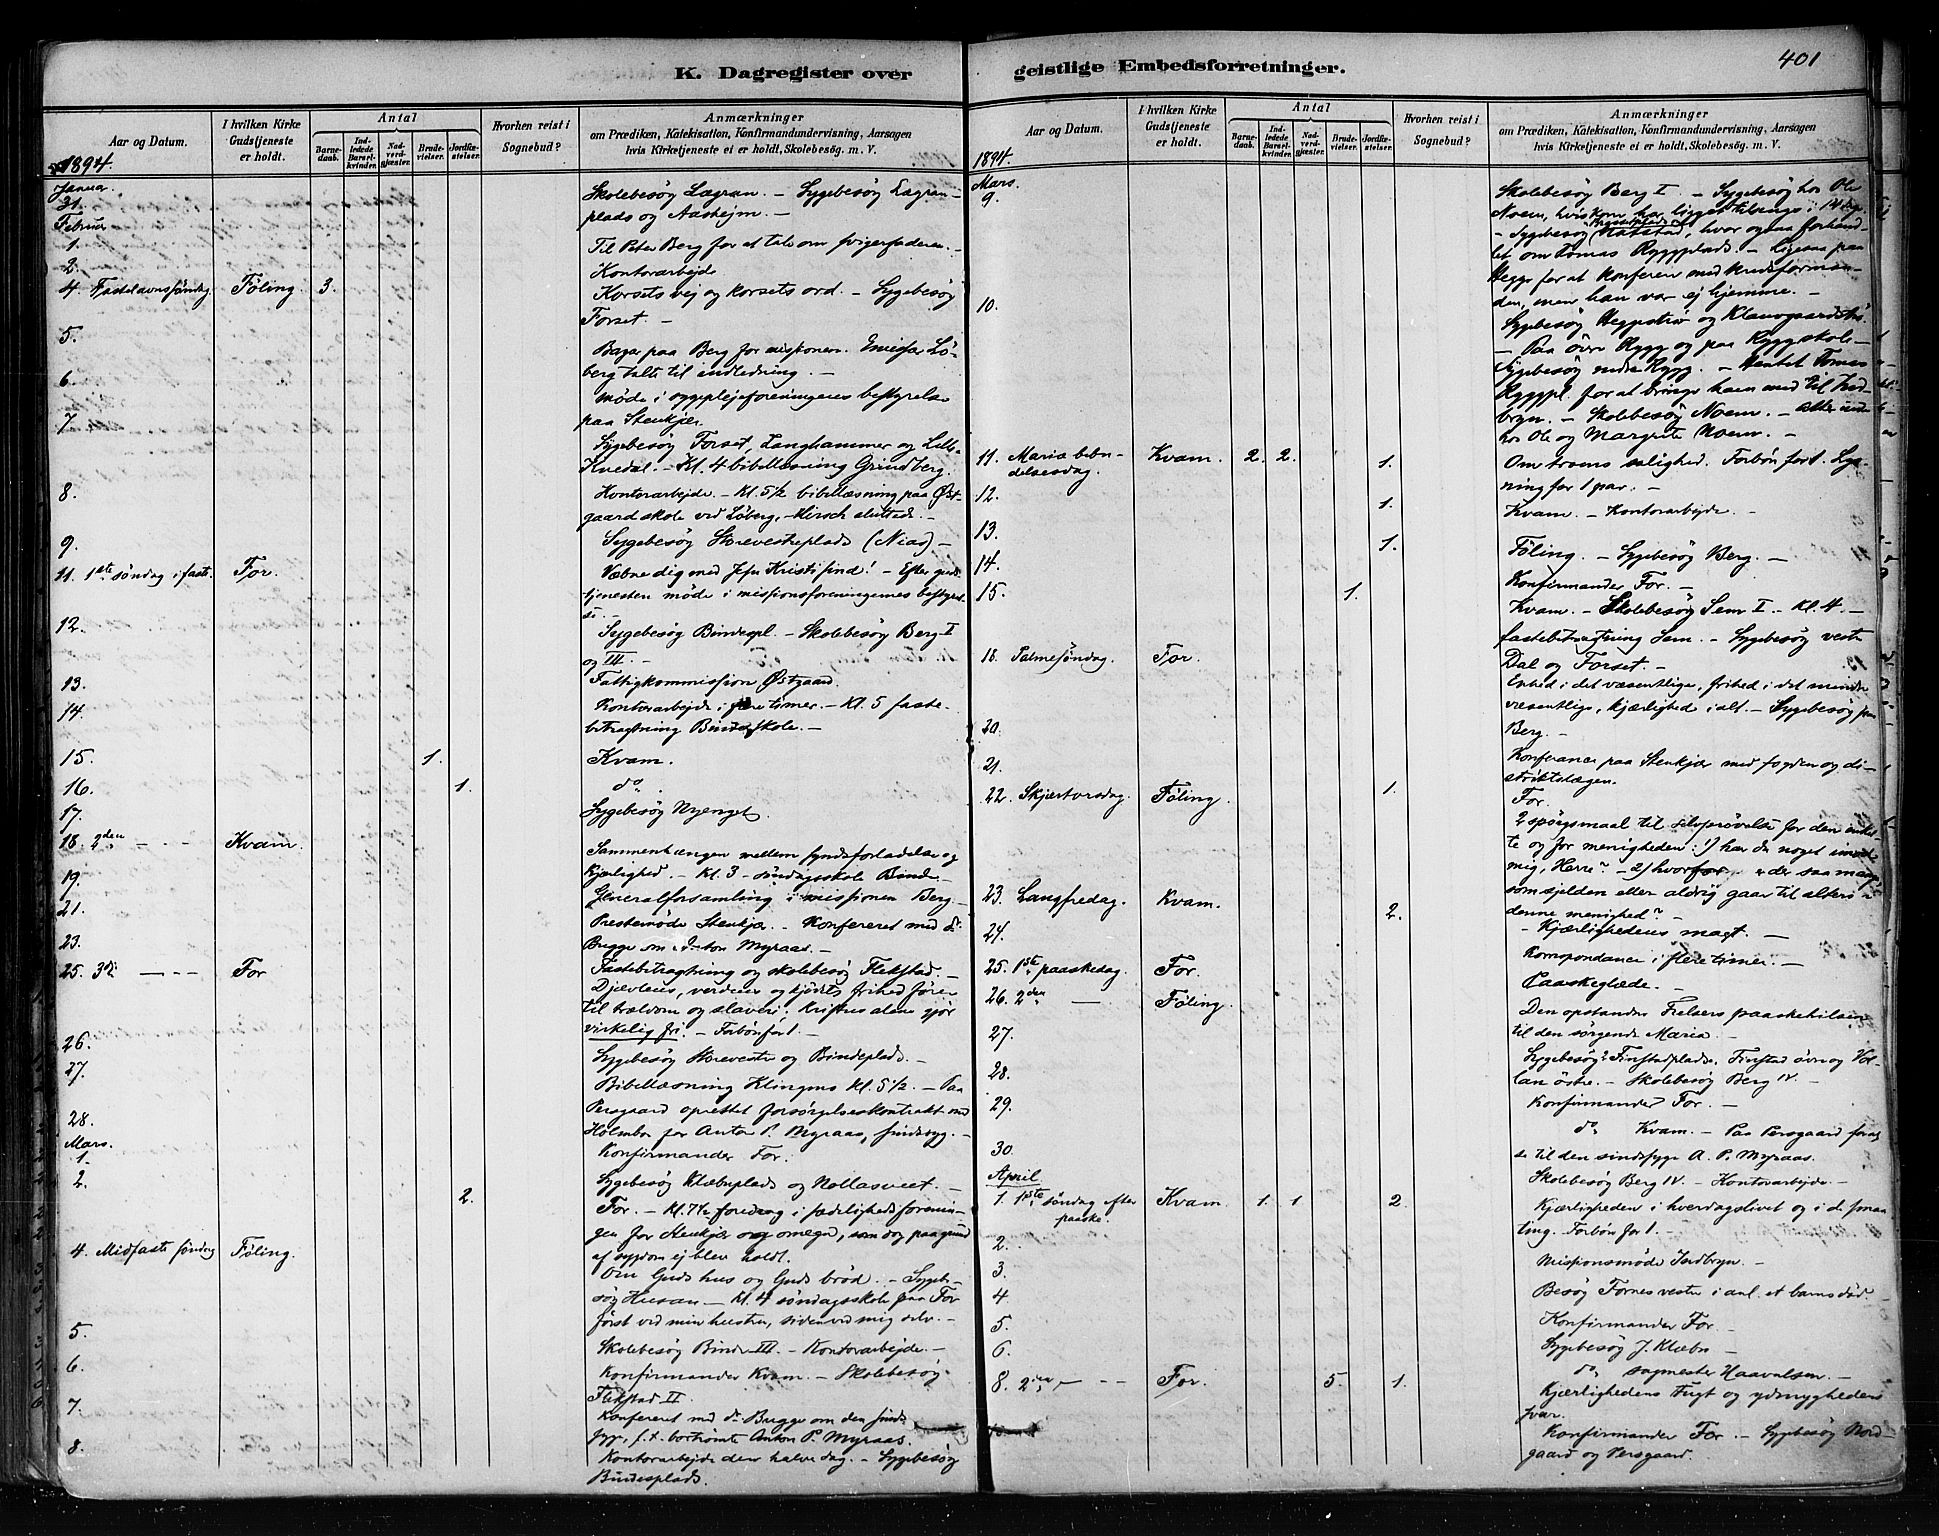 K. Dagregister over
geistlige Embedsforretninger.
401
Aar og Datum.
I hvilken Kirke
Gudstjeneste
er holdt.
Antal
Barne-
daab.
Ind-
ledede
Barsel-
kvinder.
Nad-
verd-
gjæster.
Brude-
vielser.
Jordfæ-
stelser.
Hvorhen reist i
Sognebud?
Anmærkninger
om Prædiken, Katekisation, Konfirmandundervisning, Aarsagen
hvis Kirketjeneste ei er holdt, Skolebesøg. m. V.
1894.
Januar.
31. Skolebesøg Lægran. – Sygebesøg Lægran-
plads og Aasheim. –
Februar
1. Til Peter Berg for at tale om svigerfaderen. –
2. Kontorarbejde
4. Fastelavnssøndag Føling. 3. Korsets vej og korsets ord. – Sygebesøg
Forset. –
5. Bazar paa Berg for missionen. Lø-
berg talte til indledning. –
6. Møde i sygeplejeforeningens bestyrelse
paa Stenkjær.
7. Sygebesøg Forset, Langhammer og Lille-
Kvedal. – Kl. 4 bibellæsning Grindberg.
8. Kontorarbejde. – Kl. 5½ bibellæsning paa Øst-
gaard skole ved Løberg, – Hirsch sluttede. –
9. Sygebesøg Storevestreplads (Nias) –
11. 1ste søndag i faste. For. Væbne dig med Jesu Kristi sind! – Efter guds-
tjenesten møde i missionsforeningernes bestyrel-
se. –
12. Sygebesøg Bindespl. – Skolebesøg Berg I
og III. –
13. Fattigkommission Østgaard.
14. Kontorarbejde i flere timer. – Kl. 5 faste-
betragtning Bindeskole. –
15. 1. Kvam.
16. 1. do.
17. Sygebesøg Nyenget.
18. 2den – – – Kvam. Sammenhængen mellem syndsforladelse og
kjærlighed. – Kl. 3 søndagsskole Binde. –
19. Generalforsamling i missionen Berg. –
21. Prestemøde Stenkjær. – Konfereret med dr.
Bugge om Anton Myraas. –
23. Fastebetragtning og skolebesøg Flekstad. –
25. 3die – – – For Djævlens, verdens og kjødets frihed fører
til trældom og slaveri; Kristus alene gjør
virkelig fri. – Forbøn for 1. –
26. Sygebesøg Storevestre og Bindeplads. –
27. Bibellæsning Klingens kl. 5½. – Paa
Persgaard oprettet forsørgelseskontrakt med
Holmbo for Anton P. Myraas, sindssyg. –
28. Konfirmander For.
Mars.
1. Sygebesøg Klæbuplads og Nollasveet. –
2. 2. For. – Kl. 7½ foredrag i sædelighedsforenin-
gen for Stenkjær og omegn, som dog paa grund
af sygdom ej blev holdt.
4. Midfaste søndag Føling. Om Guds hus og Guds brød. – Sygebe-
søg Husan – Kl. 4 søndagsskole paa For
først ved min hustru, siden ved mig selv. –
5. Skolebesøg Binde III. – Kontorarbejde. –
6. Konfirmander Kvam. – Skolebesøg
Flekstad II.
7. Konfereret med dr. Bugge om den sinds-
syge, f. t. bortrømte Anton P. Myraas.
8. Kontorarbejde den halve dag. – Sygebesøg
Bindesplads.
Aar og Datum.
I hvilken Kirke
Gudstjeneste
er holdt.
Antal
Barne-
daab.
Ind-
ledede
Barsel-
kvinder.
Nad-
verd-
gjæster.
Brude-
vielser.
Jordfæ-
stelser.
Hvorhen reist i
Sognebud?
Anmærkninger
om Prædiken, Katekisation, Konfirmandundervisning, Aarsagen
hvis Kirketjeneste ei er holdt, Skolebesøg. m. V.
1894.
Mars.
9. Skolebesøg Berg I. – Sygebesøg hos Ole
Noem, hvis kone har ligget tilsengs i 14 dage.
– Sygebesøg hvor ogsaa forhand-
let om Tomas Ryggplads. – Ligesaa paa
Hegge for at konferere med kredsforman-
den, men han var ej hjemme. –
10. Sygebesøg Heggstrø og
– Paa øvre Rygg og paa Rygg skole –
Sygebesøg nedre Rygg. – Hentet Tomas
Ryggpl. for at bringe ham med til Ind-
bryn. – Skolebesøg Noem. – Atter inde
hos Ole og Margrete Noem. –
11. Mariæ bebu-
delsesdag. Kvam. 2. 2. 1. Om troens salighed. Forbøn for 1. Lys-
ning for 1 par. –
12. 1. Kvam. – Kontorarbejde. –
13. 1. Føling. – Sygebesøg Berg. –
14. Konfirmander For. –
15. 1. Kvam. – Skolebesøg Sem I. – Kl. 4 –
fastebetragtning Sem. – Sygebesøg vestre
Dal og Forset. –
18. Palmesøndag. For. Enhed i det væsentlige, frihed i det mindre
væsentlige, kjærlighed i alt. – Sygebesøg paa
Berg. –
20. Konferance paa Stenkjær med fogden og di-
striktslægen.
21. For.
22. Skjærtorsdag. Føling. 1. 2 spørgsmaal til selvprøvelse for den enkel-
te og for menigheden: 1) har du noget imod
mig, Herre? – 2) hvorfor er der saa mange
som sjelden eller aldrig gaar til alters i
denne menighed? –
23. Langfredag. Kvam. 2. – Kjærlighedens magt. –
24. Korrespondance i flere timer. –
25. 1ste paaskedag. For. Paaskeglæde. –
26. 2den – Føling. Den opstandne Frelsers paaskehilsen
til den sørgende Maria. –
27. Sygebesøg: Finstadplads, Finstad øvre og Vol-
lan østre. – Skolebesøg Berg IV. –
28. Konfirmander For. –
29. do. Kvam. – Paa Persgaard
til den sindssyge A. P. Myraas.
30. Skolebesøg Berg IV. – Kontorarbejde. –
April
1. 1ste søndag efter
paaske. Kvam. 1. 1 2. Kjærligheden i hverdagslivet og i de smaa
ting. Forbøn for 1. –
2. Missionsmøde Indbryn. –
3. Besøg Fornes vestre i anl. et barns død.
4. Konfirmander For. –
5. Sygebesøg J. Klæbu –
6. do. sagmester Haavalsen. –
8. 2den – – – For. 5. 1. Kjærlighedens Tugt og ydmyghedens
svar.
Konfirmander For. – Sygebesøg Nord-
gaard og Persgaard.